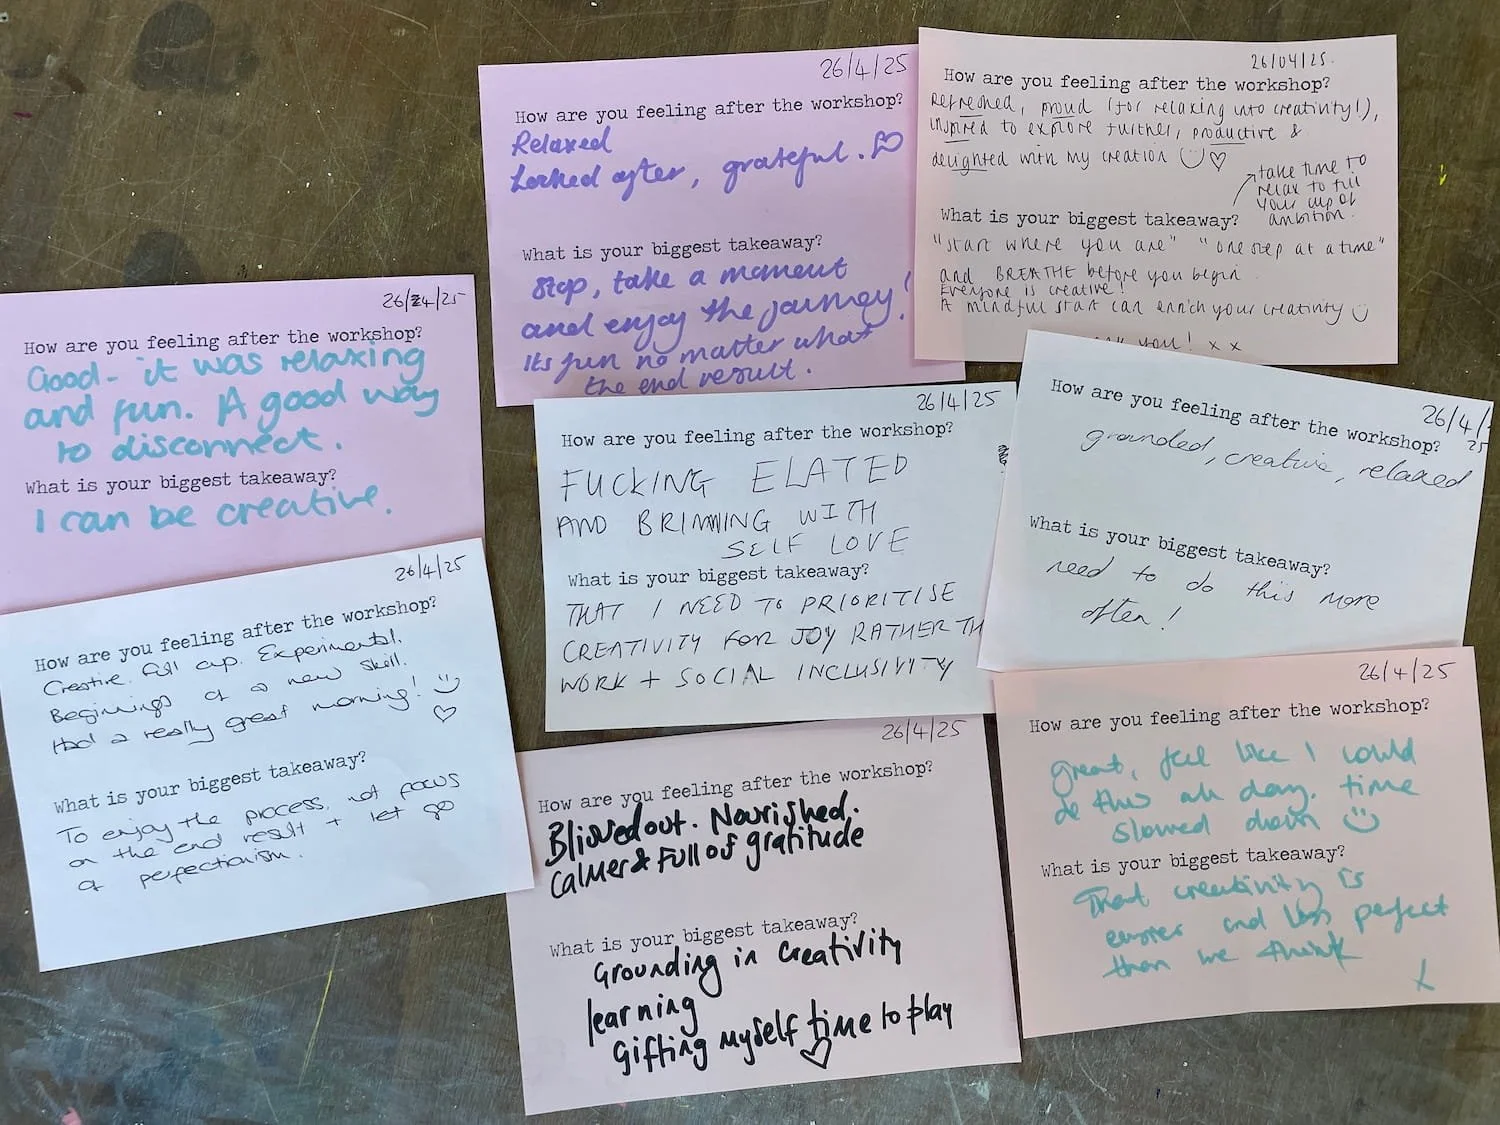 26/4/25
How are you feeling after the workshop?
Relaxed
Looked after, grateful.
What is your biggest takeaway?
Stop, take a moment
and enjoy the journey!
Its fun no matter what
the end result.
26/04/25.
How are you feeling after the workshop?
Refreshed, proud (for relaxing into creativity!),
inspired to explore further, productive &
delighted with my creation
take time to
relax to fill
your cup of
ambition.
What is your biggest takeaway?
"start where you are" "one step at a time"
and BREATHE before you begin
Everyone is creative!
A mindful start can enrich your creativity
you! x x
26/4/25
How are you feeling after the workshop?
Good - it was relaxing
and fun. A good way
to disconnect.
What is your biggest takeaway?
I can be creative.
26/4/25
How are you feeling after the workshop?
FUCKING ELATED
AND BRIMMING WITH
SELF LOVE
What is your biggest takeaway?
THAT I NEED TO PRIORITISE
CREATIVITY FOR JOY RATHER TH
WORK + SOCIAL INCLUSIVITY
26/4/
25
How are you feeling after the workshop?
grounded, creative, relaxed
What is your biggest takeaway?
need to do this more
often!
26/4/25
How are you feeling after the workshop?
Creative. Full cup. Experimental.
Beginnings of a new skill.
Had a really great morning!
What is your biggest takeaway?
To enjoy the process, not focus
on the end result + let go
of perfectionism.
26/4/25
How are you feeling after the workshop?
Blissed out. Nourished.
Calmer & Full of gratitude
What is your biggest takeaway?
Grounding in creativity
learning
Gifting myself time to play
26/4/25
How are you feeling after the workshop?
Great, feel like I could
do this all day. time
slowed down
What is your biggest takeaway?
That creativity is
easier and less perfect
than we think
x